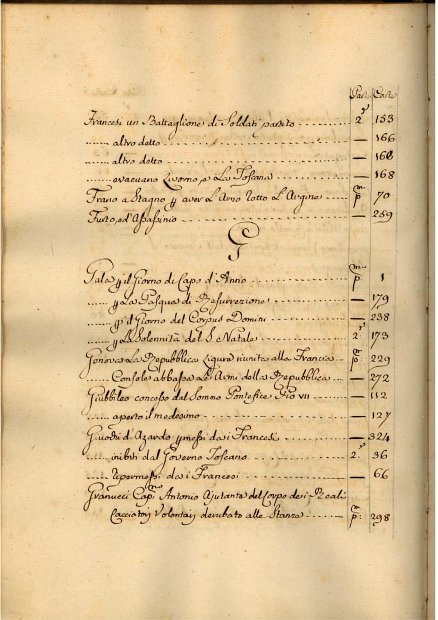 Parte Carte
Francesi un Battaglione di Soldati partito 2ª 153
altro detto — 166
altro detto — 168
evacuano Livorno, e La Toscana — 168
Frano a Stagno p aver L'Arno rotto L'Argine pma 70
Furto, ed'Assassinio — 259
G
Gala p il Giorno di Capo d'Anno pma 1
p La Pasqua di Resurrezione — 179
p il Giorno del Corpus Domini — 238
p La Solennità del S. Natale 2ª 173
Genova La Repubblica Ligure riunita alla Francia pma 229
Console abbassa Le Armi della Repubblica — 272
Giubbileo concesso dal Sommo Pontefice Pio VII — 112
aperto il medesimo — 127
Giuochi d'Azardo pmessi da i Francesi — 324
inibiti dal Governo Toscano 2ª 36
ripermessi da i Francesi — 66
Granucci Capno Antonio Ajutante del Corpo de i Reali
Cacciatori Volontarj derubato alle Stanze pma 298